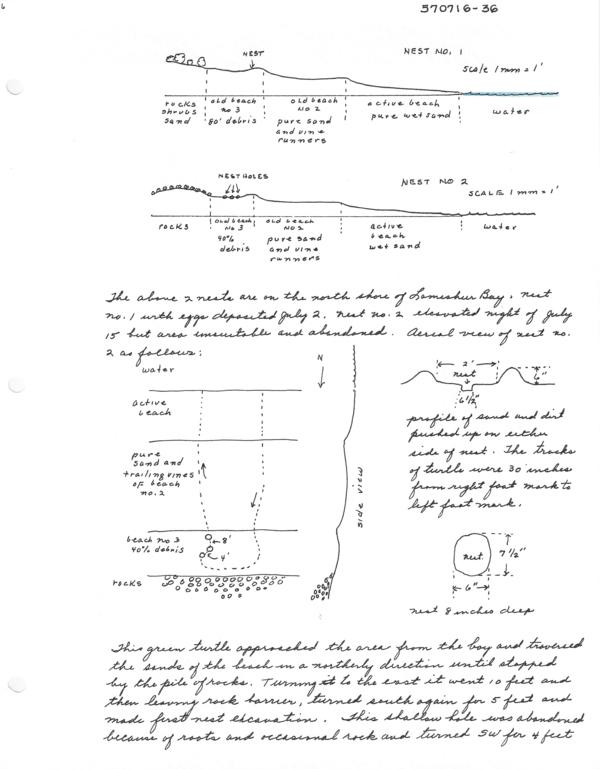 570716-36
NEST NO. 1
NEST
Scale 1 mm = 1'
rocks shrubs sand
old beach no 3 80' debris
old beach NO 2 pure sand and vine runners
active beach pure wet sand
water
NEST NO 2
NEST HOLES
SCALE 1 mm = 1'
rocks
old beach No 3 40% debris
old beach NO 2 pure sand and vine runners
active beach wet sand
water
The above 2 nests are on the north shore of Lameshur Bay. nest
no. 1 with eggs deposited July 2. nest no. 2 excavated night of July
15 but area unsuitable and abandoned. Aerial view of nest no.
2 as follows:
water
active
beach
pure
sand and
trailing vines
of beach
no. 2
beach no 3
40% debris
8'
4'
rocks
N
side view
2'
nest
6"
6 1/2"
profile of sand and dirt
pushed up on either
side of nest. The tracks
of turtle were 30 inches
from right foot mark to
left foot mark.
nest
7 1/2"
6"
nest 8 inches deep
This green turtle approached the area from the bay and traversed
the sands of the beach in a northerly direction until stopped
by the pile of rocks. Turning it to the east it went 10 feet and
then leaving rock barrier, turned south again for 5 feet and
made first nest excavation. This shallow hole was abandoned
because of roots and occasional rock and turned SW for 4 feet